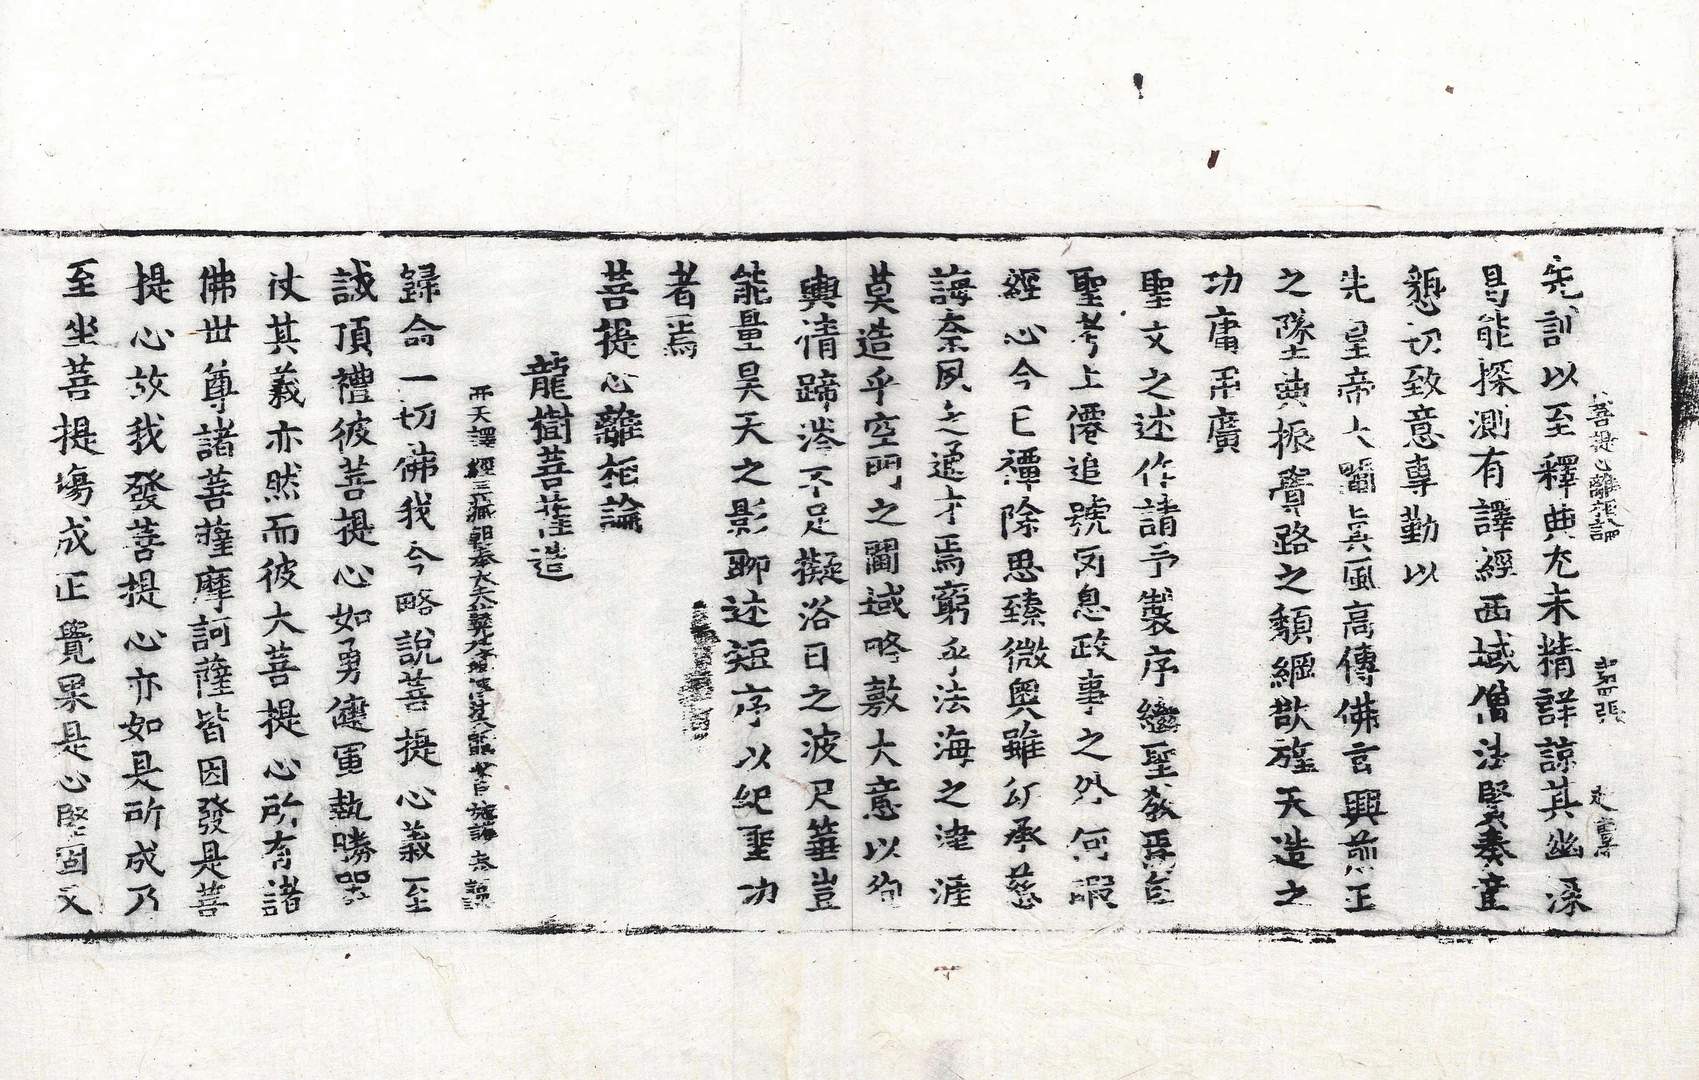 菩提心離相論 第四張 赴字号
先訓以至釋典尤未精詳諒其幽深
曷能探測有譯經西域僧法賢奏章
懇切致意專勤以
先皇帝大闡眞風高傳佛言興前王
之墜典振覺路之頹綱歆旌天造之
功庸用廣
聖文之述作請予製序繼聖教焉自
聖考上僊追號罔息政事之外何暇
經心今已禫除思臻微奧雖仰承慈
誨奈夙乏通才焉窮乎法海之津涯
莫造乎空門之閫域略敷大意以徇
輿情蹄涔不足擬浴日之波尺箠豈
能量昊天之影聊述短序以紀聖功
者焉
菩提心離相論
龍樹菩薩造
西天譯經三藏朝奉大夫試光祿卿傳法大師賜紫臣施護奉 詔譯
歸命一切佛我今略說菩提心義至
誠頂禮彼菩提心如勇健軍執勝器
仗其義亦然而彼大菩提心所有諸
佛世尊諸菩薩摩訶薩皆因發是菩
提心故我發菩提心亦如是所成乃
至坐菩提場成正覺果是心堅固又